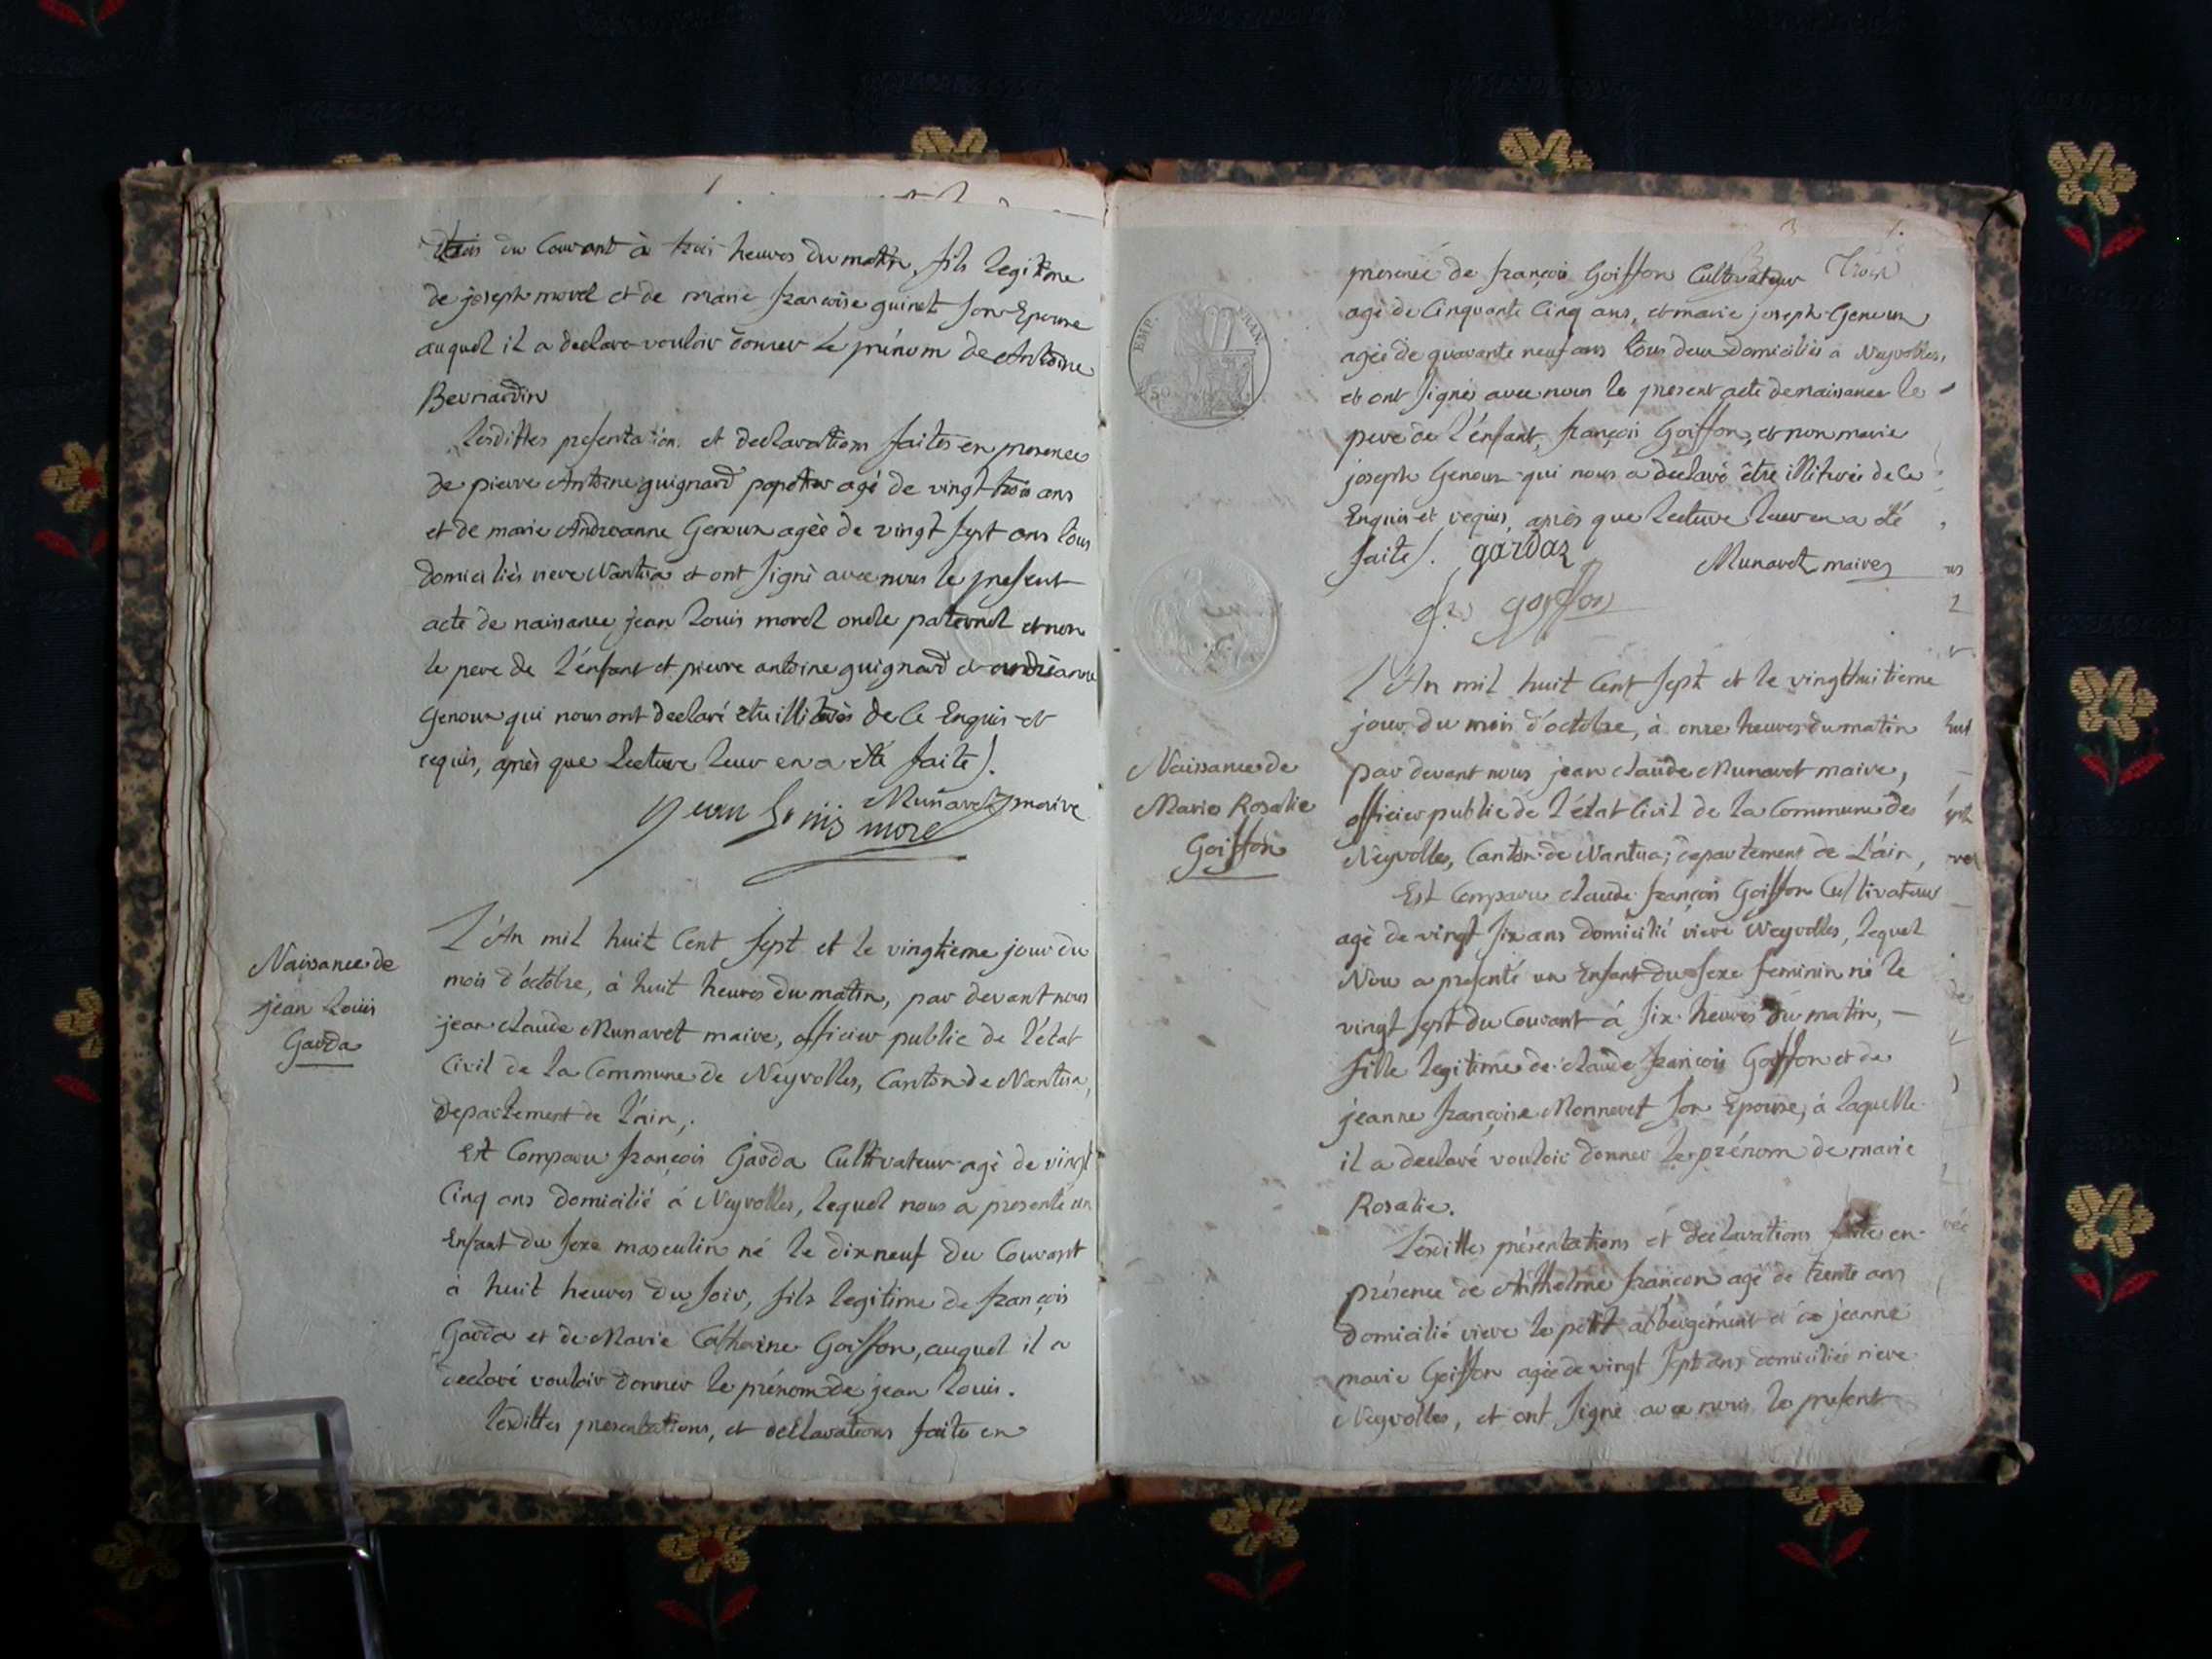 trois du Courant à trois heures du matin, fils legitime
de joseph morel et de marie françoise guinet son Epouse
auquel il a declaré vouloir donner le prénom de Antoine
Bernardin
Lesdittes presentation et declarations faites en presence
de pierre Antoine guignard agé de vingt trois ans
et de marie Andreanne Genoux agèe de vingt sept ans tous
domiciliés riere Nantua et ont signé avec nous le present
acte de naissance jean Louis morel oncle paternel et non
le pere de l'énfant et pierre antoine guignard et andrèanne
Genoux qui nous ont declaré etre illiterés de ce Enquis et
requis, après que Lecture leur en a été faite).
Munaret maire
jean Louis morel
Naissance de
jean Louis
Garda
L'An mil huit Cent sept et le vingtieme jour du
mois d'octobre, à huit heures du matin, par devant nous
jean claude Munaret maire, officier public de l'état
Civil de la Commune de Neyrolles, Canton de Nantua,
departement de l'ain,
Est Comparu françois Garda Cultivateur agé de vingt
Cinq ans domicilié à Neyrolles, lequel nous a presenté un
Enfant du sexe masculin né le dix neuf du Courant
à huit heures du soir, fils legitime de françois
Garda et de Marie Catherine Goiffon, auquel il a
declaré vouloir donner le prénom de jean Louis.
Lesdittes presentations, et declarations faite en
EMP. FRAN.
50
presence de françois Goiffon Cultivateur trois
agé de Cinquante Cinq ans, et marie joseph Genoux
agèe de quarante neuf ans tous deux domiciliés à Neyrolles,
et ont signés avec nous le present acte de naissance le
pere de l'énfant, françois Goiffon, et non marie
joseph Genoux qui nous a declaré être illiterée de ce
Enquis et requis, après que Lecture leur en a été
faite). gardaz Munaret maire
goiffon
Naissance de
Marie Rosalie
Goiffon
L'An mil huit Cent sept et le vingt huitieme
jour du mois d'octobre, à onze heures du matin
par devant nous jean claude Munaret maire,
officier public de l'état Civil de la Commune de
Neyrolles, Canton de Nantua, departement de L'ain,
Est Comparu claude françois Goiffon Cultivateur
agé de vingt six ans domicilié riere Neyrolles, lequel
Nous a presenté un Enfant du sexe feminin né le
vingt sept du Courant à six heures du matin,
fille legitime de claude françois Goiffon et de
jeanne françoise Monneret son Epouse, à laquelle
il a declaré vouloir donner le prénom de marie
Rosalie.
Lesdittes présentations et declarations faite en
présence de Anthelme françon agé de trente ans
domicilié riere le petit abbergement et de jeanne
marie Goiffon agèe de vingt sept ans domiciliée riere
Neyrolles, et ont signé avec nous le present